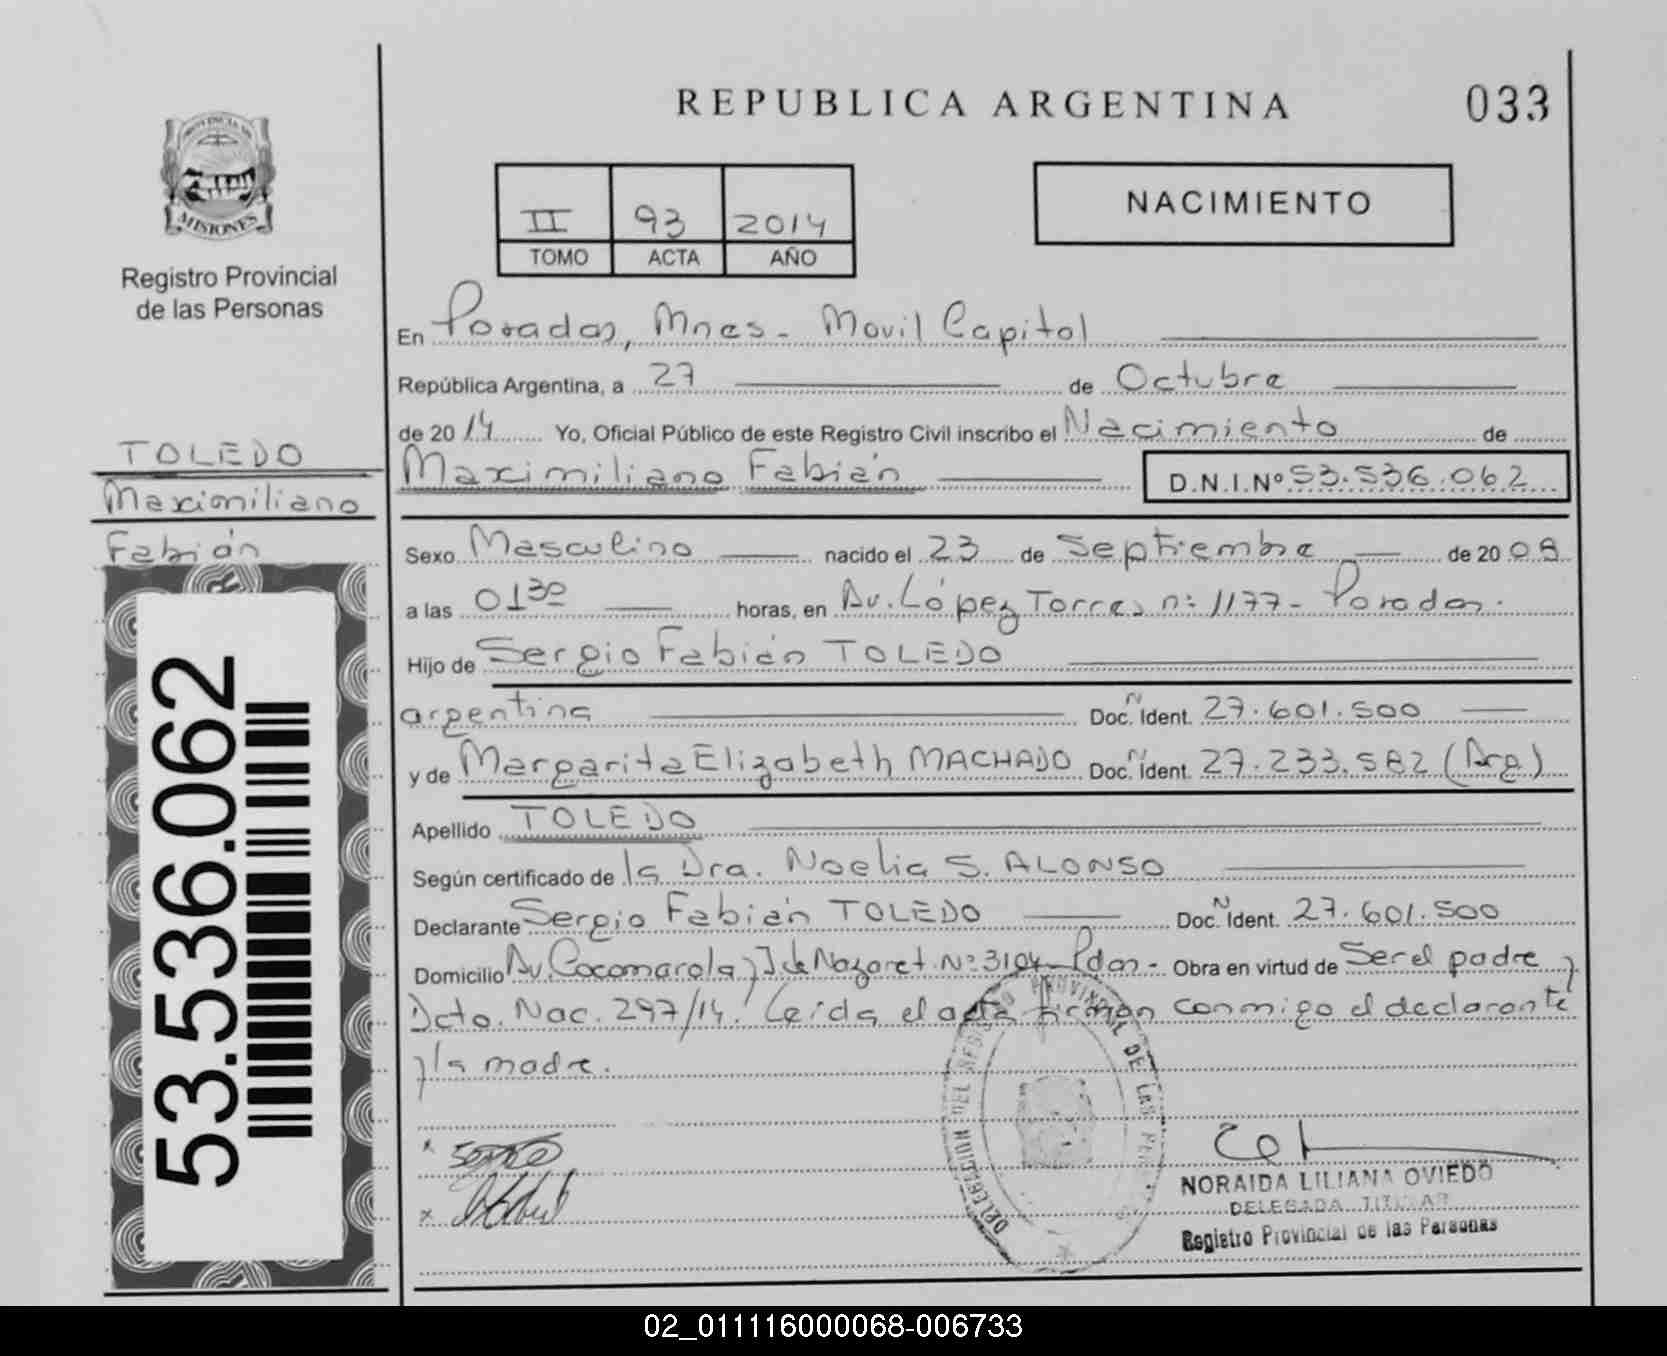 REPUBLICA ARGENTINA
033
PROVINCIA DE
MISIONES
Registro Provincial
de las Personas
II 93 2014
TOMO ACTA AÑO
NACIMIENTO
En Posadas, Mnes - Movil Capital
República Argentina, a 27 de Octubre
de 2014 Yo, Oficial Público de este Registro Civil inscribo el Nacimiento de
Maximiliano Fabián D.N.I.Nº 53.536.062
TOLEDO
Maximiliano
Fabián
Sexo Masculino nacido el 23 de Septiembre de 20
a las 01³⁰ horas, en Av. López Torres nº 1177 - Posadas.
Hijo de Sergio Fabián TOLEDO
argentina Doc. N Ident. 27.601.500
y de Margarita Elizabeth MACHADO Doc. N Ident. 27.233.582 (Arg)
Apellido TOLEDO
Según certificado de la Dra. Noelia S. ALONSO
Declarante Sergio Fabián TOLEDO Doc. N Ident. 27.601.500
Domicilio Av. Cocomarola y J de Nazaret Nº 3104 - Pdas - Obra en virtud de Ser el padre y
Dcto. Nac. 297/14. Leída el acta firman conmigo el declarante
y la madre.
53.536.062
DELEGACION DEL REGISTRO PROVINCIAL DE LAS
NORAIDA LILIANA OVIEDO
DELEGADA TITULAR
Registro Provincial de las Personas
02_011116000068-006733